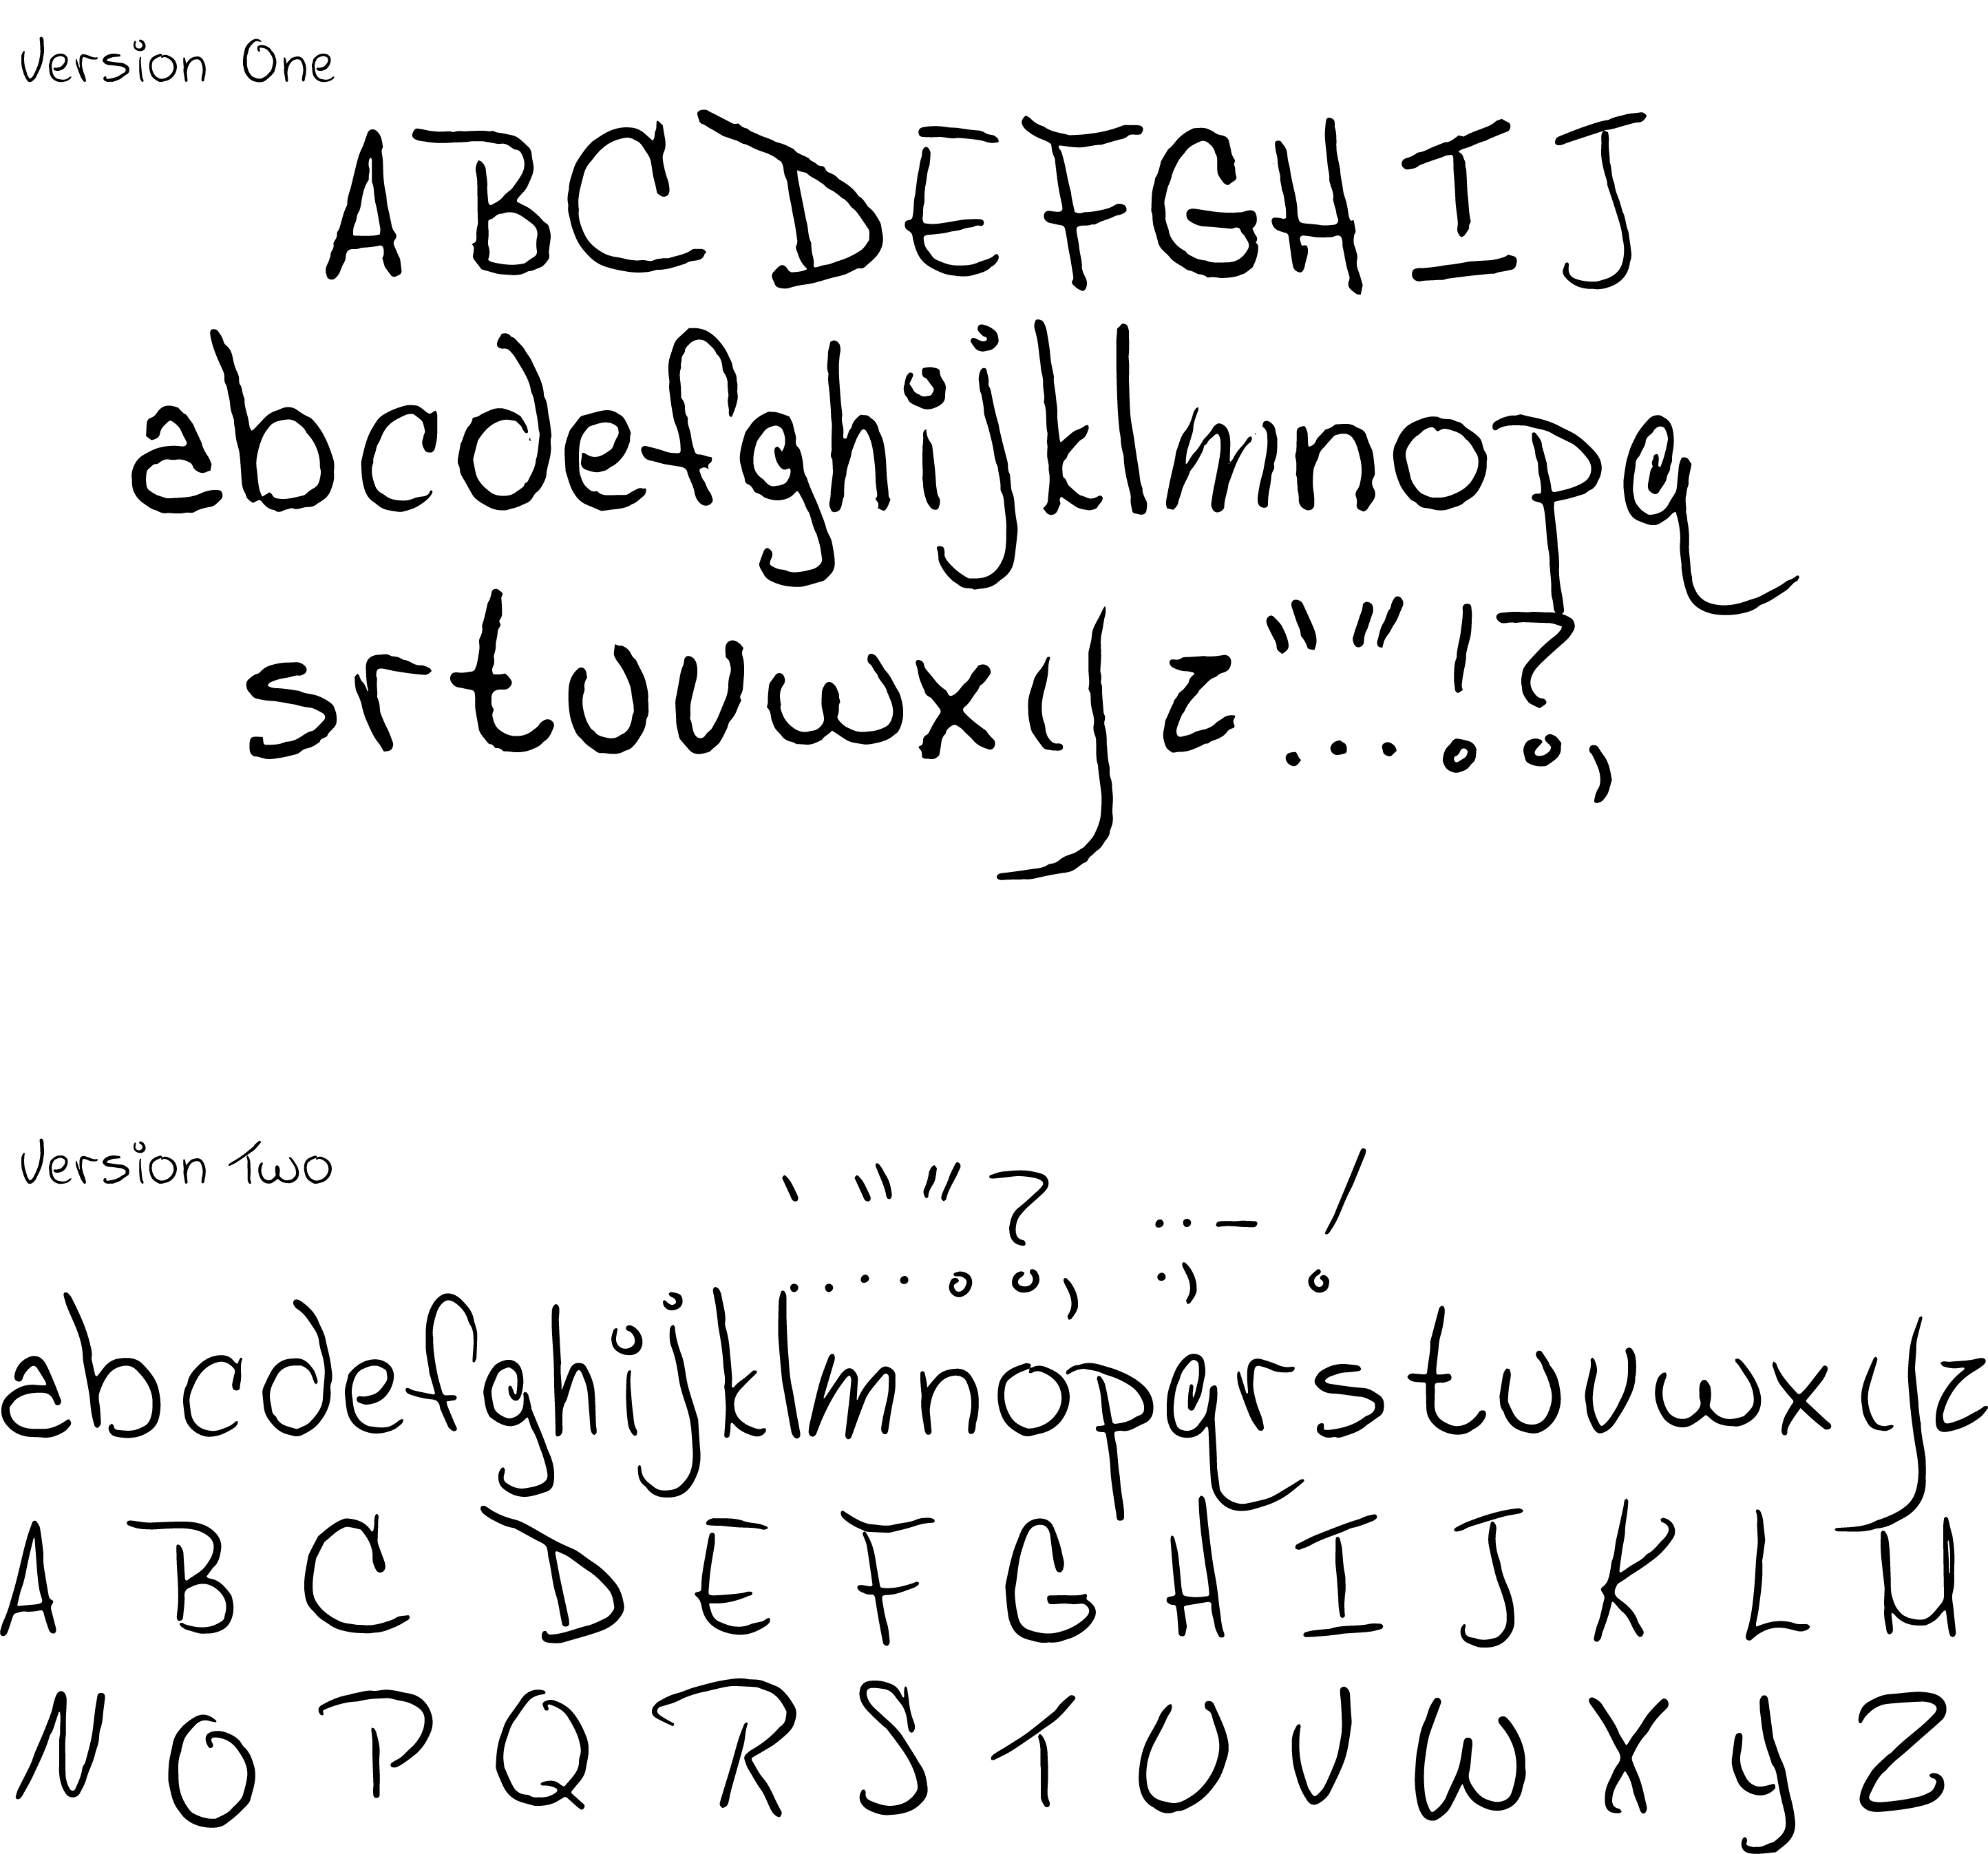 Version One
ABCDEFGHIJ
abcdefghijklmnopq
srtuvwxyz“”!?
...。。,
Version Two
‘ “ ” ? .. – /
.. .. 。 。, ., 。
abcdefghijklmnopqrstuvwxyz
A B C D E F G H I J K L M
N O P Q R S T U V W X Y Z